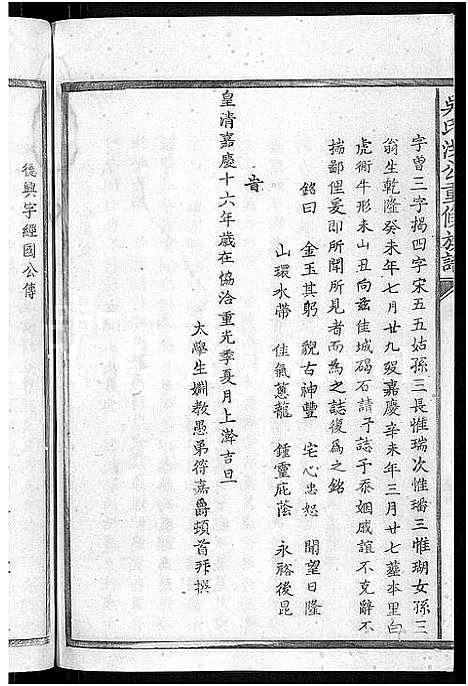 吳氏洪公重修族譜
字曾三字揭四字宋五五姑孫三長惟瑞次惟璠三惟瑚女孫三
翁生乾隆癸未年七月廿九歿嘉慶辛未年三月廿七塟本里白
虎衕牛形未山丑向茲佳城碣石請予誌予忝姻戚誼不克辭不
揣鄙俚爰即所聞所見者而為之誌復爲之銘
銘曰 金玉其躬 貌古神豐 宅心忠恕 聞望日隆
山環水帶 佳氣蔥蘢 鍾靈庇蔭 永裕後昆
旹
皇清嘉慶十六年歲在協洽重光季夏月上澣吉旦
太學生姻教愚弟符嘉爵頓首拜撰
德興字經國公傳